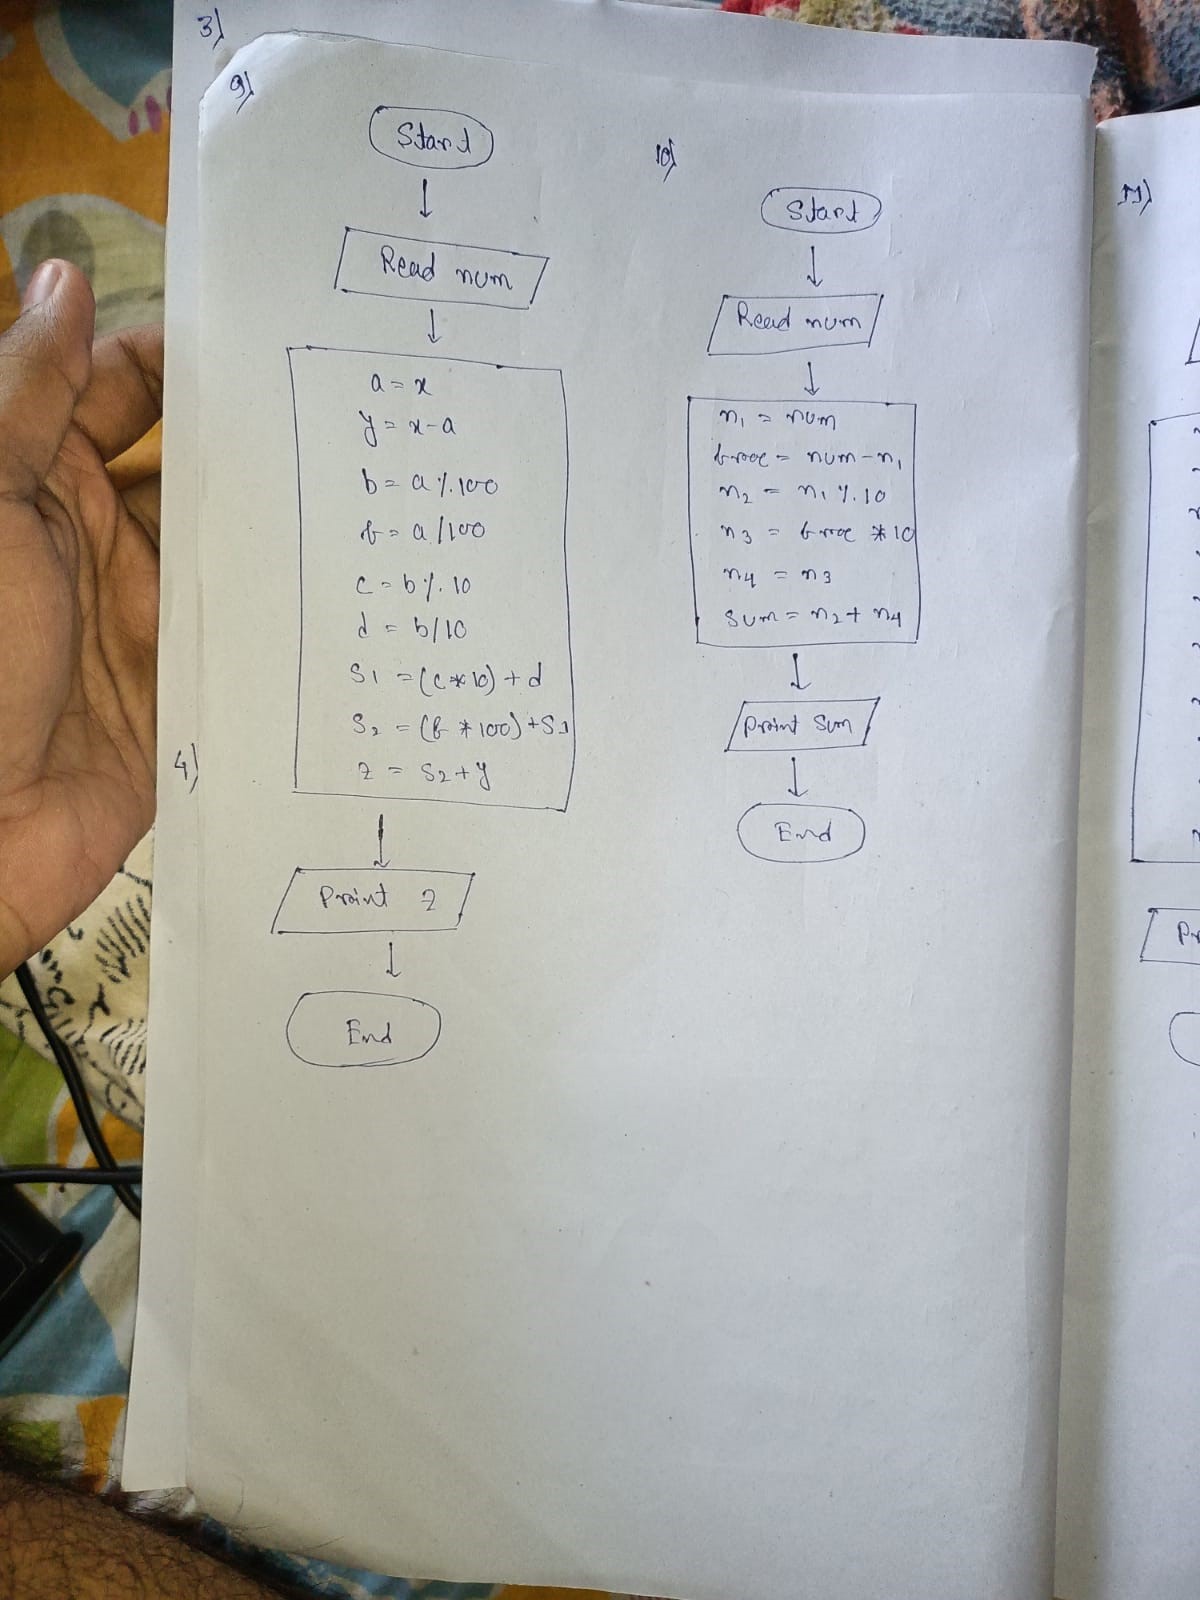 3)
9)
Start
Read num
a = x
y = x-a
b = a%100
f = a/100
c = b%10
d = b/10
S1 = (c*10)+d
S2 = (f*100)+S1
z = S2+y
Print z
End
4)
10)
Start
Read num
n1 = num
frac = num-n1
n2 = n1 % 10
n3 = frac *10
n4 = n3
sum = n2+n4
Print Sum
End
11)
Pr